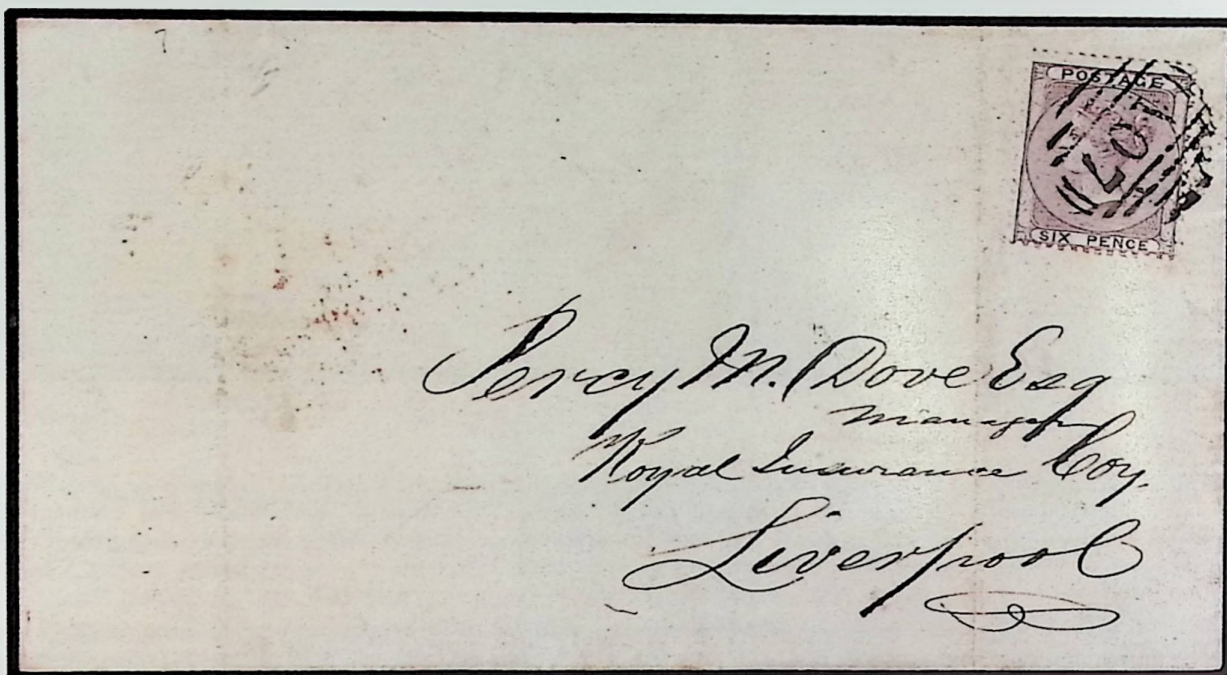 POSTAGE
SIX PENCE
Percy M. Dove Esq
Manager
Royal Insurance Coy.
Liverpool